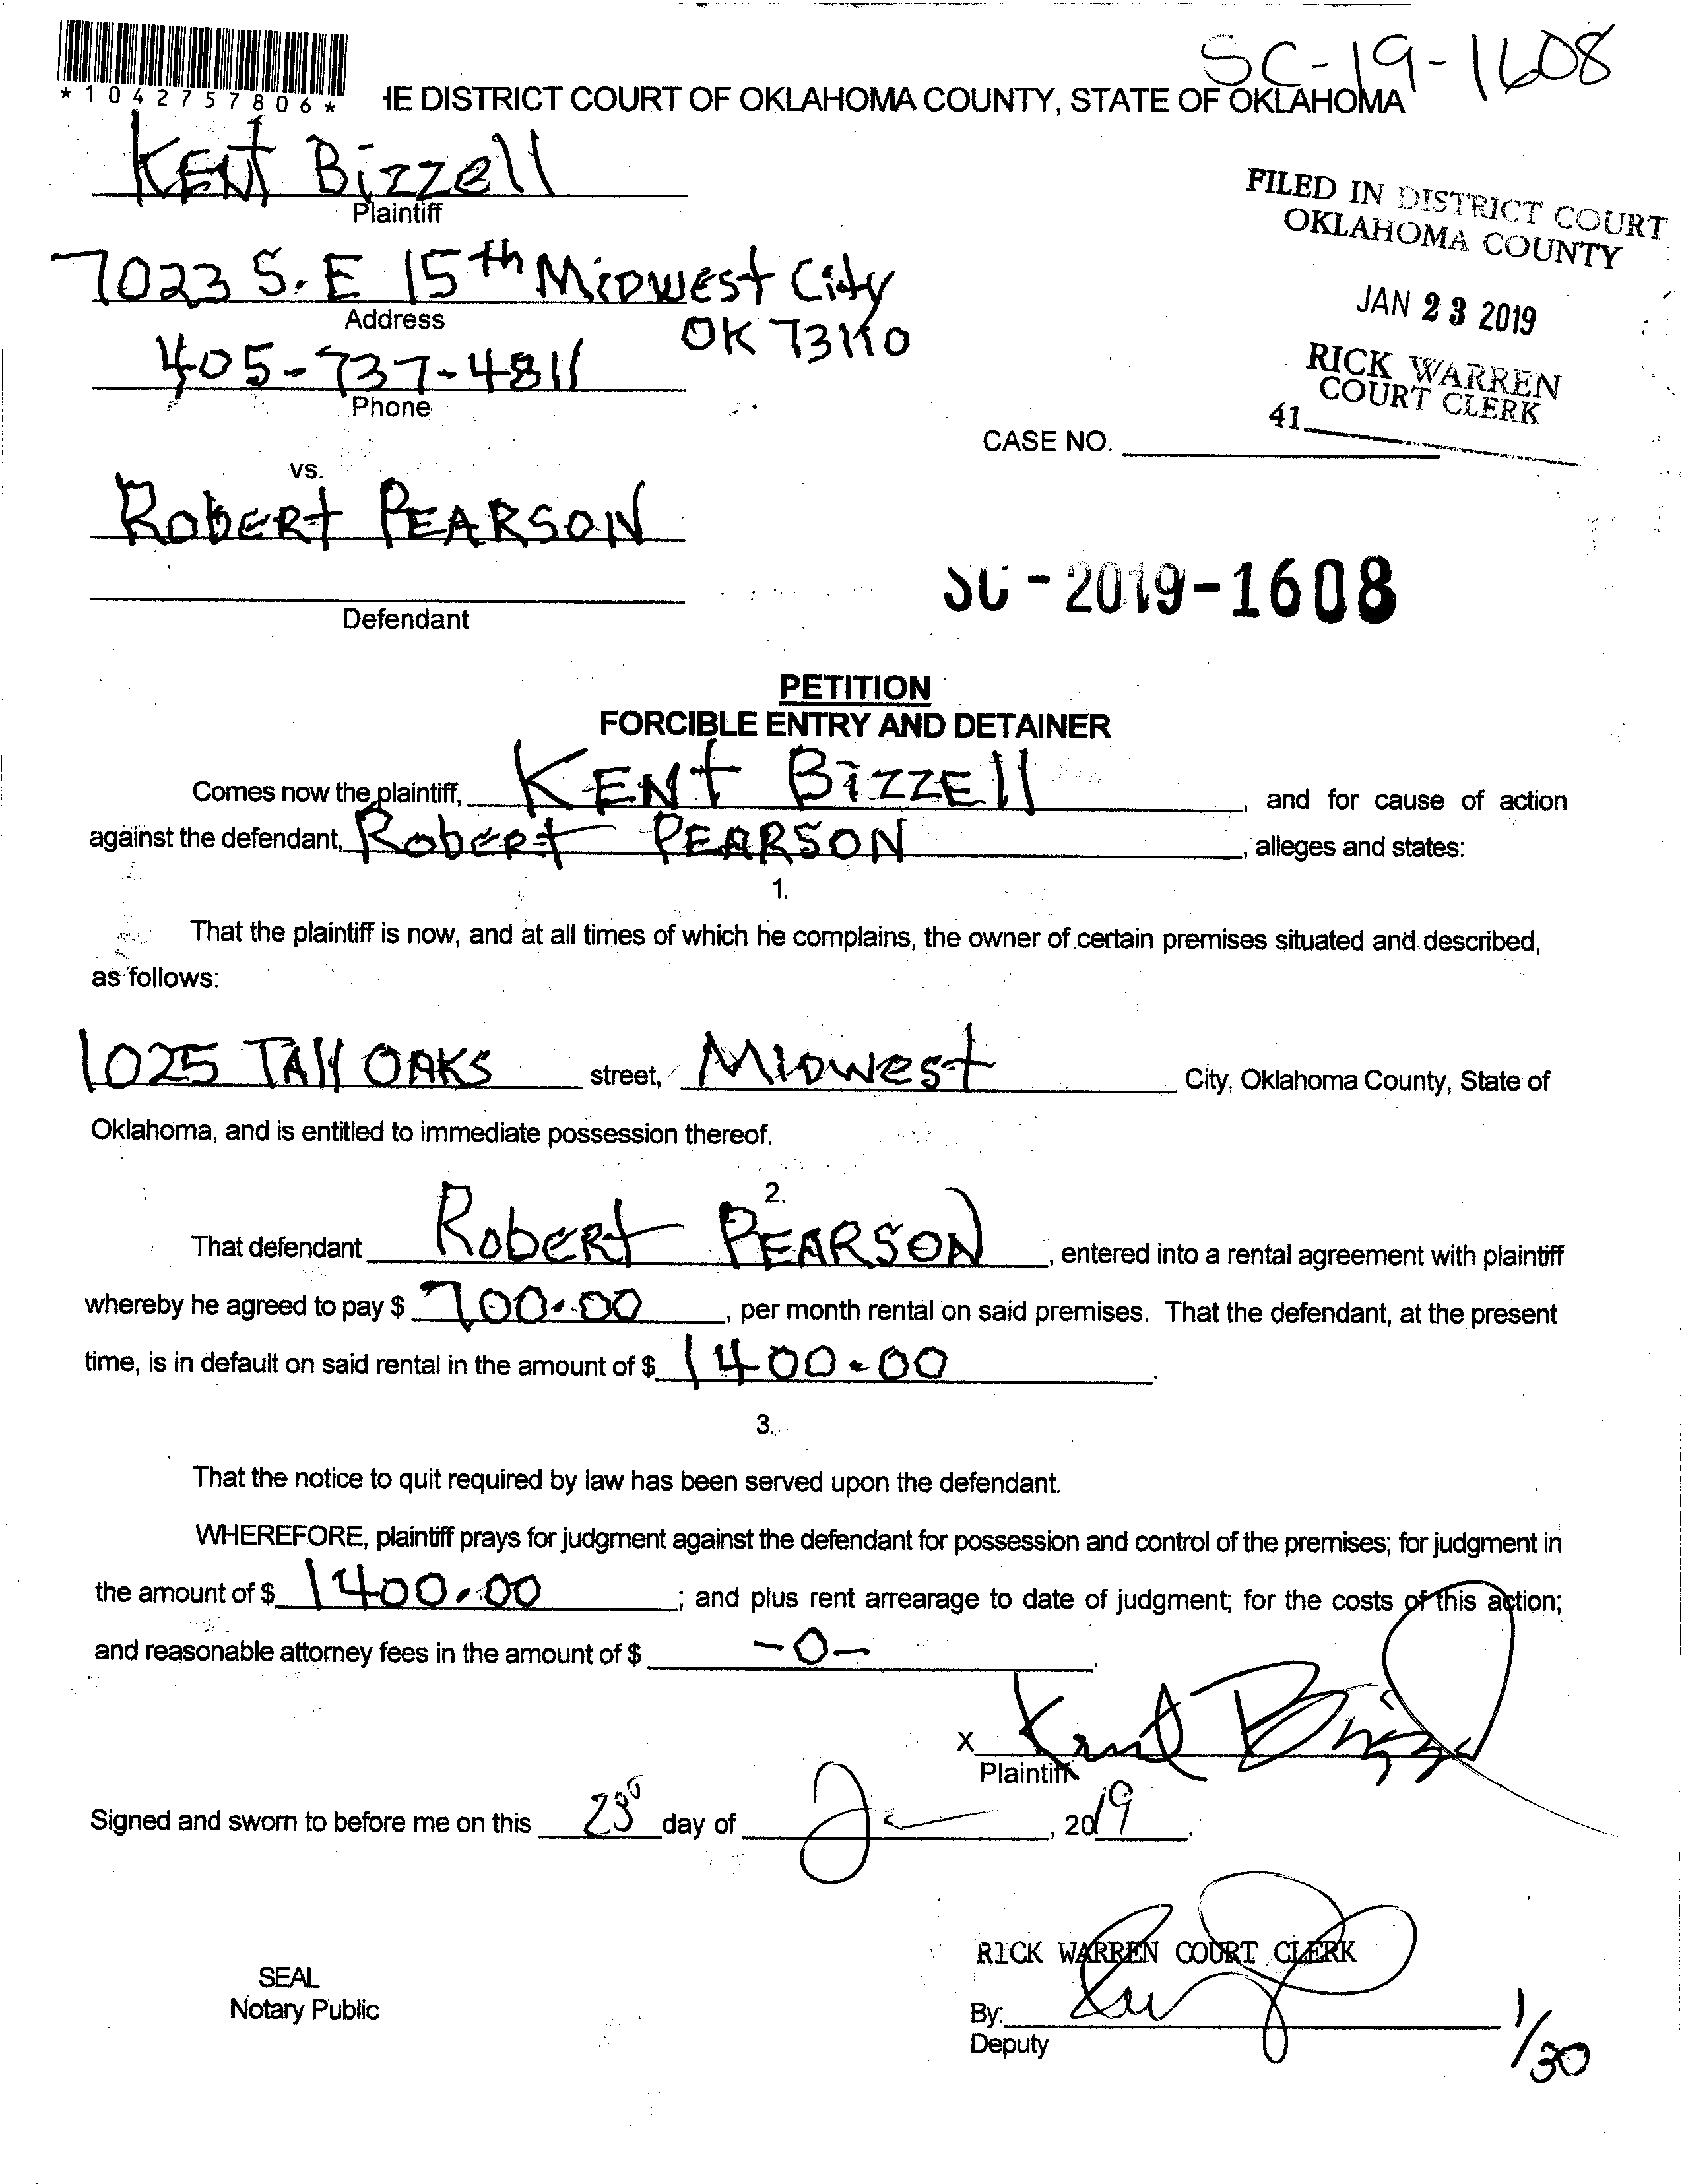 SC-19-1608
*1042757806*
IE DISTRICT COURT OF OKLAHOMA COUNTY, STATE OF OKLAHOMA
KENT Bizzell
Plaintiff
7023 S.E 15th MIDWEST City
OK 73110
Address
405-737-4811
Phone
FILED IN DISTRICT COURT
OKLAHOMA COUNTY
JAN 23 2019
RICK WARREN
COURT CLERK
41
CASE NO.
vs.
RobERt PEARSON
Defendant
SC-2019-1608
PETITION
FORCIBLE ENTRY AND DETAINER
Comes now the plaintiff, KENt BizzEll, and for cause of action
against the defendant, RobERt PEARSON, alleges and states:
1.
That the plaintiff is now, and at all times of which he complains, the owner of certain premises situated and described,
as follows:
1025 TAll OAKS street, MIDWESt City, Oklahoma County, State of
Oklahoma, and is entitled to immediate possession thereof.
2.
That defendant RobERt PEARSON, entered into a rental agreement with plaintiff
whereby he agreed to pay $ 700.00, per month rental on said premises. That the defendant, at the present
time, is in default on said rental in the amount of $ 1400.00.
3.
That the notice to quit required by law has been served upon the defendant.
WHEREFORE, plaintiff prays for judgment against the defendant for possession and control of the premises; for judgment in
the amount of $ 1400.00; and plus rent arrearage to date of judgment; for the costs of this action;
and reasonable attorney fees in the amount of $ -0-.
X Kent Bizzell
Plaintiff
Signed and sworn to before me on this 23 day of, 2019.
RICK WARREN COURT CLERK
SEAL
Notary Public
By:
Deputy
1/30